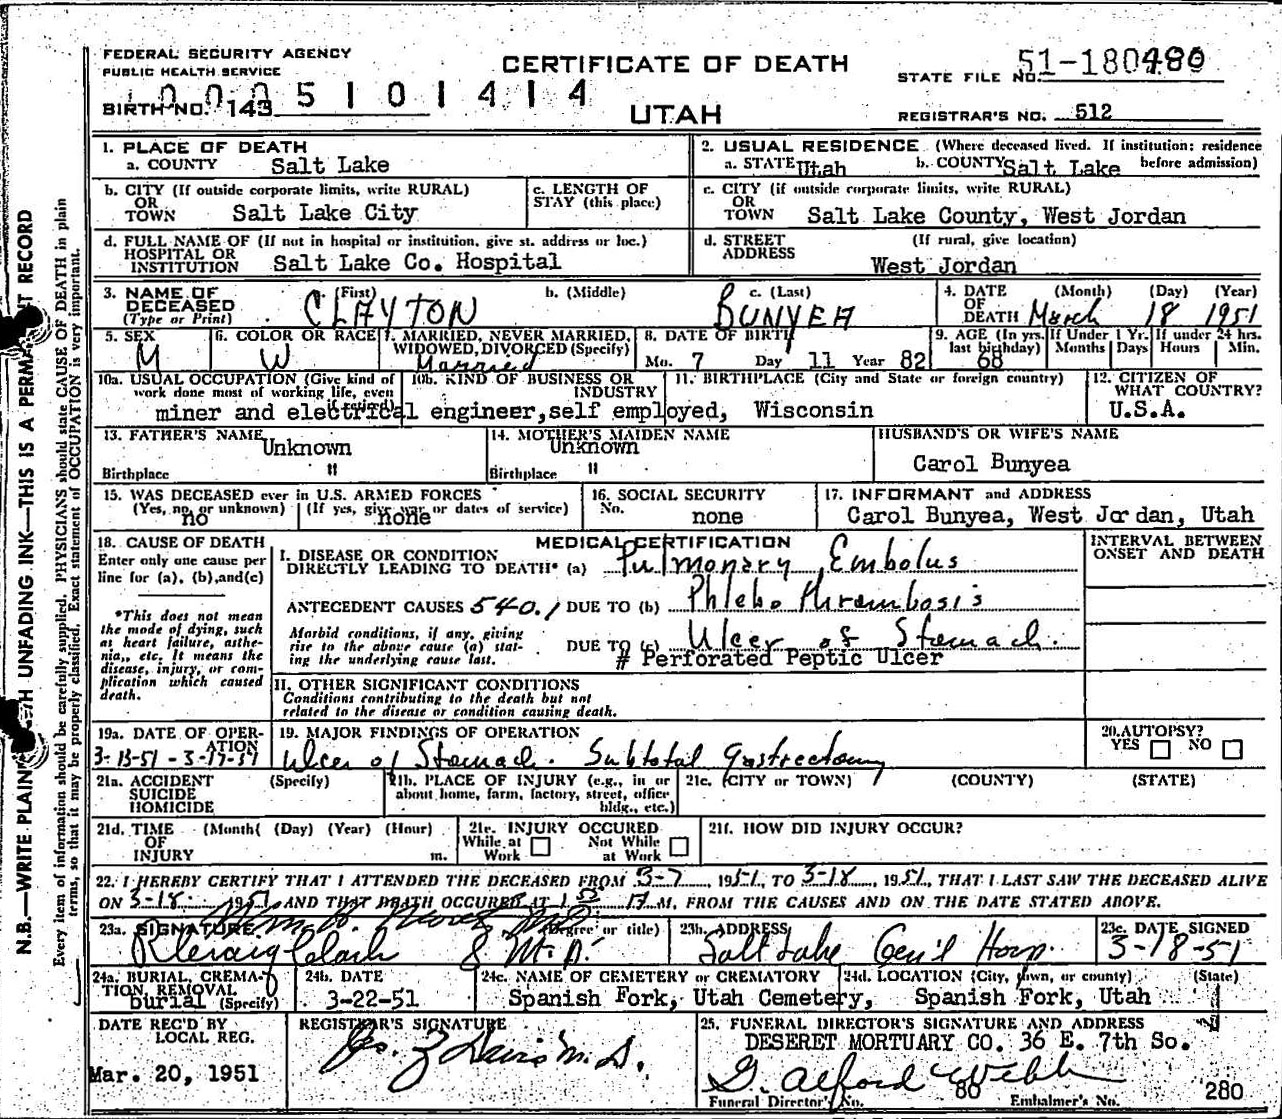 FEDERAL SECURITY AGENCY
PUBLIC HEALTH SERVICE
CERTIFICATE OF DEATH
STATE FILE NO. 51-180480
BIRTH NO. 143
5101414
UTAH
REGISTRAR'S NO. 512
1. PLACE OF DEATH
a. COUNTY Salt Lake
2. USUAL RESIDENCE (Where deceased lived. If institution: residence before admission)
a. STATE Utah b. COUNTY Salt Lake
b. CITY (If outside corporate limits, write RURAL)
OR
TOWN Salt Lake City
c. LENGTH OF
STAY (this place)
c. CITY (if outside corporate limits, write RURAL)
OR
TOWN Salt Lake County, West Jordan
d. FULL NAME OF (If not in hospital or institution, give st. address or loc.)
HOSPITAL OR
INSTITUTION Salt Lake Co. Hospital
d. STREET (If rural, give location)
ADDRESS
West Jordan
3. NAME OF
DECEASED
(Type or Print)
a. (First) b. (Middle) c. (Last)
CLAYTON BUNYEA
4. DATE (Month) (Day) (Year)
OF
DEATH March 18 1951
5. SEX
M
6. COLOR OR RACE
W
7. MARRIED, NEVER MARRIED,
WIDOWED, DIVORCED (Specify)
Married
8. DATE OF BIRTH
Mo. 7 Day 11 Year 82
9. AGE (In yrs. last birthday)
68
If Under 1 Yr.
Months Days
If under 24 hrs.
Hours Min.
10a. USUAL OCCUPATION (Give kind of
work done most of working life, even
if retired)
10b. KIND OF BUSINESS OR
INDUSTRY
miner and electrical engineer, self employed,
11. BIRTHPLACE (City and State or foreign country)
Wisconsin
12. CITIZEN OF
WHAT COUNTRY?
U.S.A.
13. FATHER'S NAME
Unknown
Birthplace "
14. MOTHER'S MAIDEN NAME
Unknown
Birthplace "
HUSBAND'S OR WIFE'S NAME
Carol Bunyea
15. WAS DECEASED ever in U.S. ARMED FORCES
(Yes, no, or unknown) (If yes, give war or dates of service)
no none
16. SOCIAL SECURITY
No.
none
17. INFORMANT and ADDRESS
Carol Bunyea, West Jordan, Utah
18. CAUSE OF DEATH
Enter only one cause per
line for (a), (b), and (c)
*This does not mean
the mode of dying, such
as heart failure, asthe-
nia, etc. It means the
disease, injury, or com-
plication which caused
death.
MEDICAL CERTIFICATION
INTERVAL BETWEEN
ONSET AND DEATH
I. DISEASE OR CONDITION
DIRECTLY LEADING TO DEATH* (a) Pulmonary Embolus
ANTECEDENT CAUSES 540.1 DUE TO (b) Phlebo thrombosis
Morbid conditions, if any, giving
rise to the above cause (a) stat-
ing the underlying cause last.
DUE TO (c) Ulcer of Stomach.
# Perforated Peptic Ulcer
II. OTHER SIGNIFICANT CONDITIONS
Conditions contributing to the death but not
related to the disease or condition causing death.
19a. DATE OF OPER-
ATION
3-13-51 - 3-17-51
19. MAJOR FINDINGS OF OPERATION
Ulcer of Stomach. Subtotal gastrectomy
20. AUTOPSY?
YES NO
21a. ACCIDENT (Specify)
SUICIDE
HOMICIDE
21b. PLACE OF INJURY (e.g., in or
about home, farm, factory, street, office
bldg., etc.)
21c. (CITY or TOWN) (COUNTY) (STATE)
21d. TIME (Month) (Day) (Year) (Hour)
OF
INJURY m.
21e. INJURY OCCURED
While at Work Not While at Work
21f. HOW DID INJURY OCCUR?
22. I HEREBY CERTIFY THAT I ATTENDED THE DECEASED FROM 3-7, 1951, TO 3-18, 1951, THAT I LAST SAW THE DECEASED ALIVE
ON 3-18 1951 AND THAT DEATH OCCURED AT M, FROM THE CAUSES AND ON THE DATE STATED ABOVE.
23a. SIGNATURE (Degree or title)
Clark M.D.
23b. ADDRESS
Salt Lake Gen'l Hosp.
23c. DATE SIGNED
3-18-51
24a. BURIAL, CREMA-
TION, REMOVAL
Burial (Specify)
24b. DATE
3-22-51
24c. NAME OF CEMETERY or CREMATORY
Spanish Fork, Utah Cemetery,
24d. LOCATION (City, town, or county) (State)
Spanish Fork, Utah
DATE REC'D BY
LOCAL REG.
Mar. 20, 1951
REGISTRAR'S SIGNATURE
Davis M.D.
25. FUNERAL DIRECTOR'S SIGNATURE AND ADDRESS
DESERET MORTUARY CO. 36 E. 7th So.
G. Alford Webb
Funeral Director's No. 80 Embalmer's No. 280
N.B.—WRITE PLAINLY WITH UNFADING INK—THIS IS A PERMANENT RECORD
Every item of information should be carefully supplied. PHYSICIANS should state CAUSE OF DEATH in plain
terms, so that it may be properly classified. Exact statement of OCCUPATION is very important.